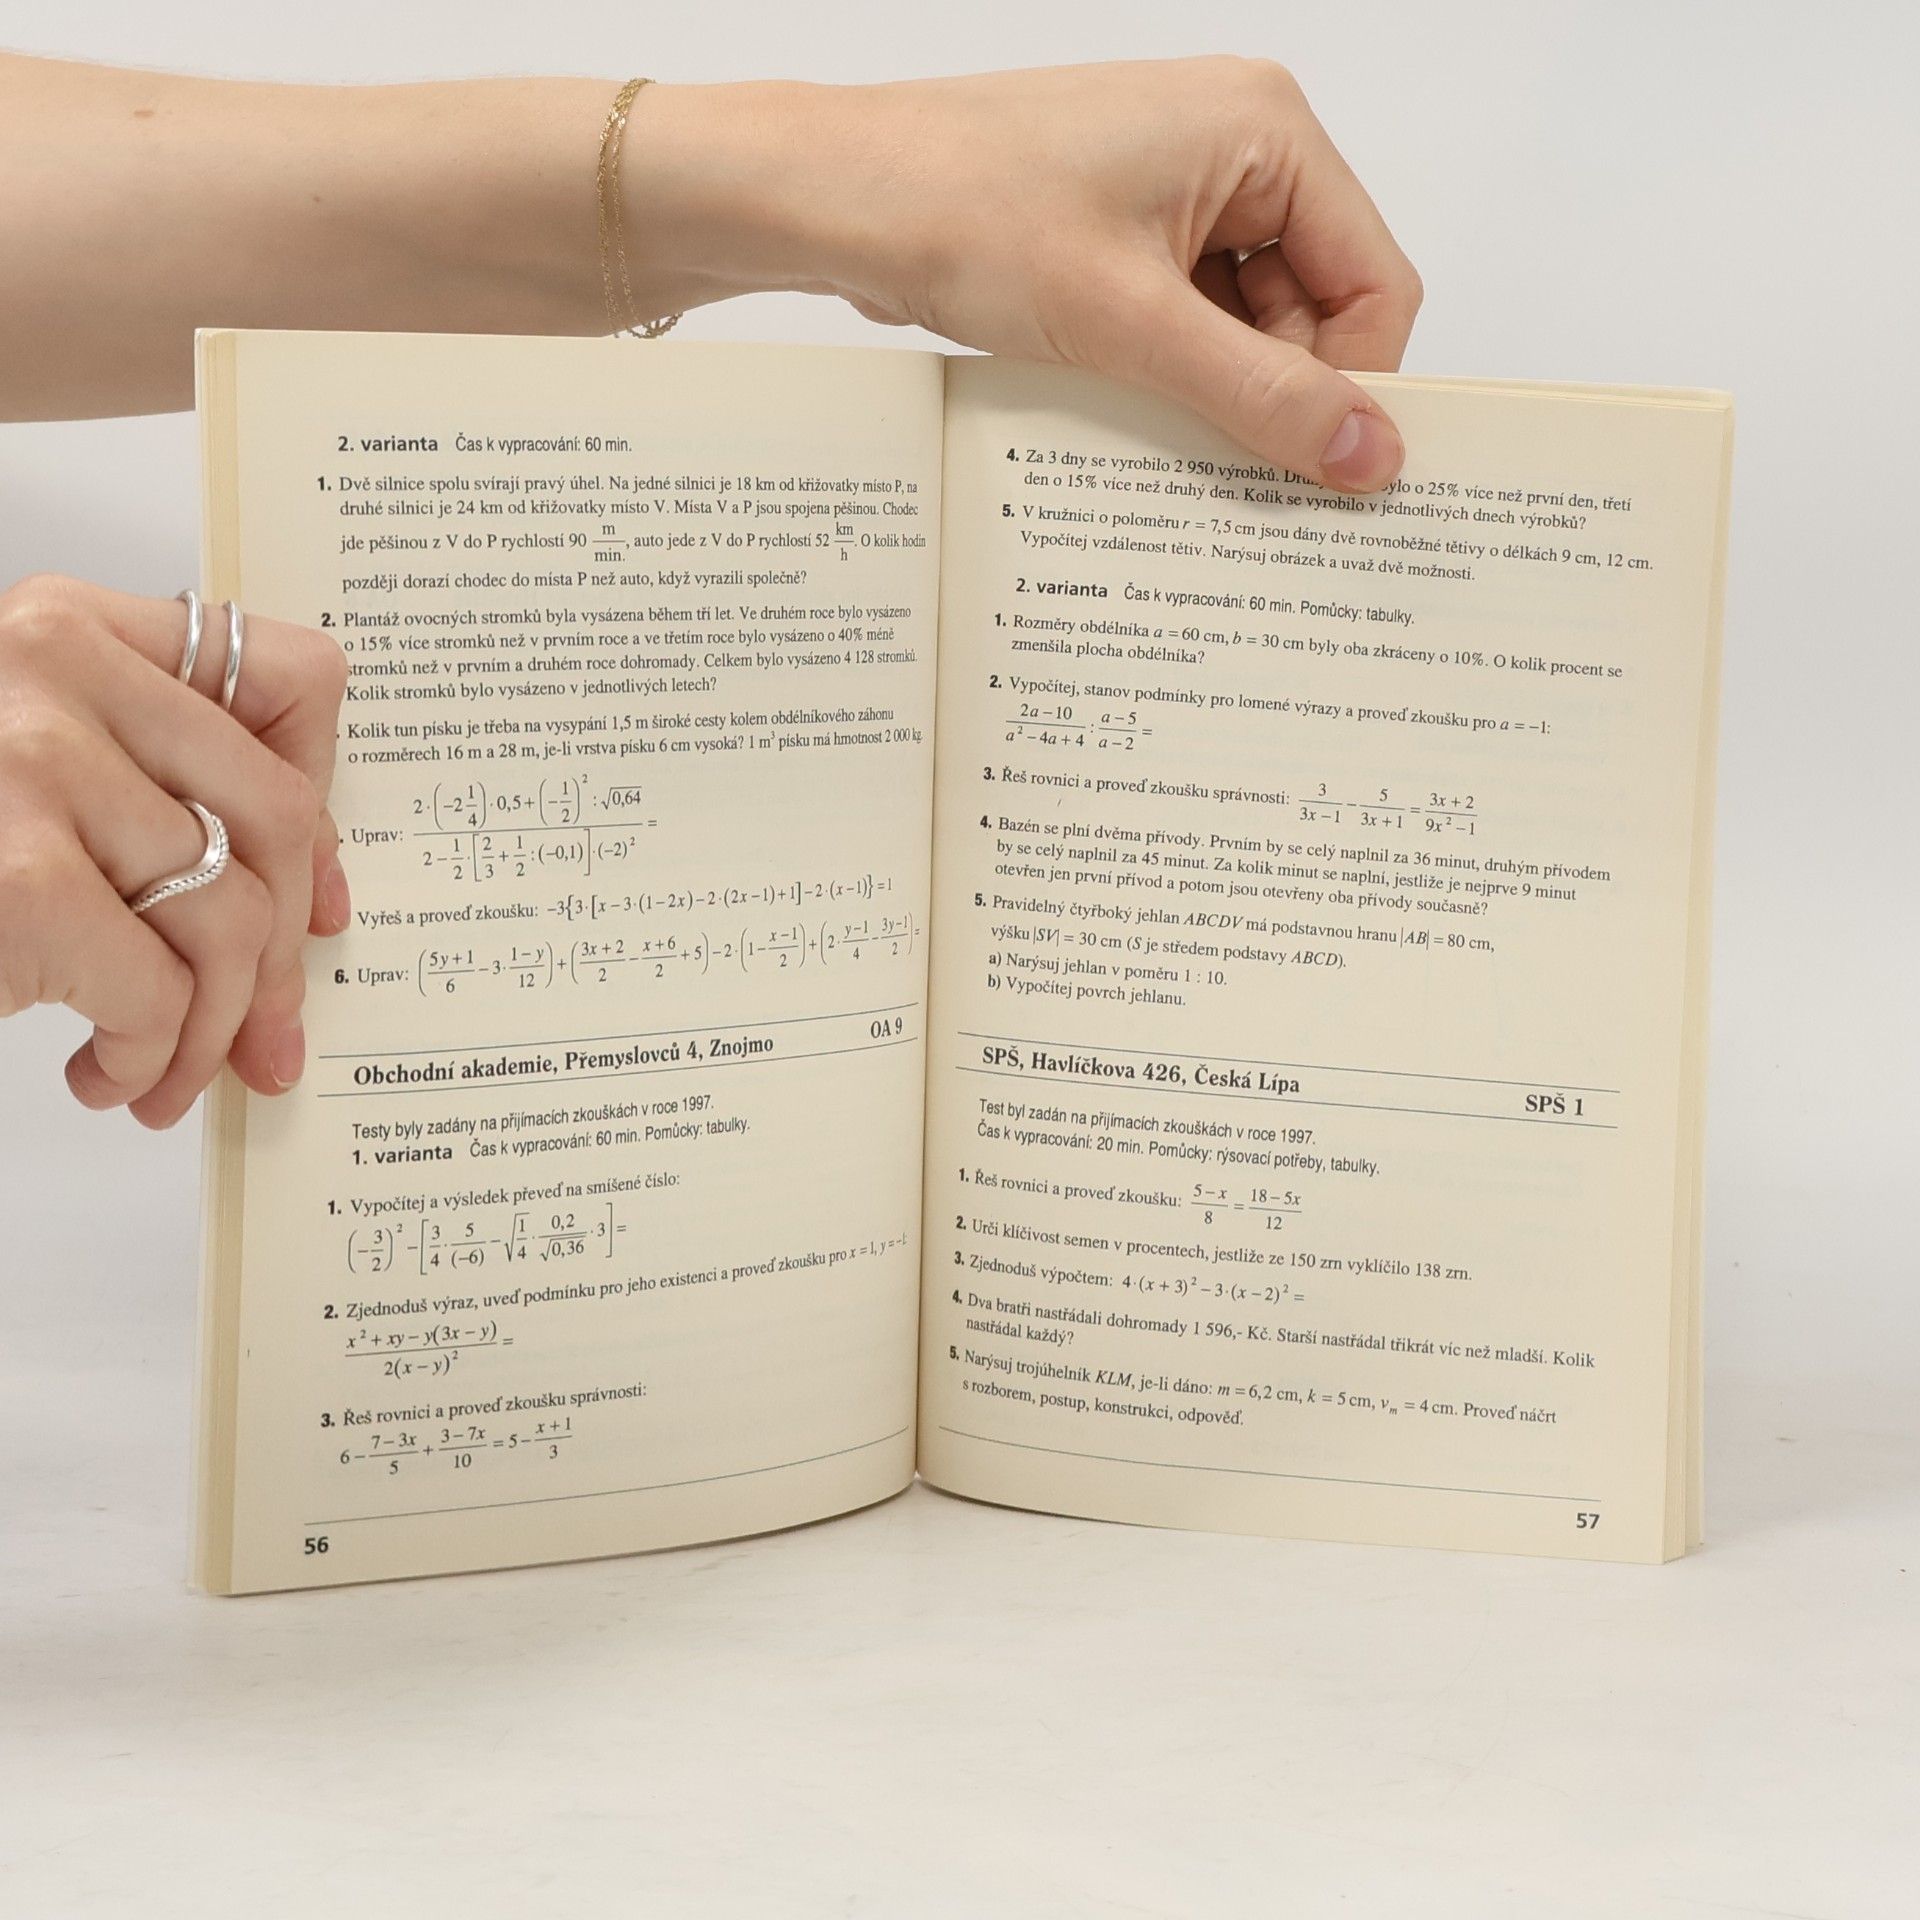 2. varianta Čas k vypracování: 60 min.
1. Dvě silnice spolu svírají pravý úhel. Na jedné silnici je 18 km od křižovatky místo P, na
druhé silnici je 24 km od křižovatky místo V. Místa V a P jsou spojena pěšinou. Chodec
jde pěšinou z V do P rychlostí 90 m/min., auto jede z V do P rychlostí 52 km/h. O kolik hodin
později dorazí chodec do místa P než auto, když vyrazili společně?
2. Plantáž ovocných stromků byla vysázena během tří let. Ve druhém roce bylo vysázeno
o 15% více stromků než v prvním roce a ve třetím roce bylo vysázeno o 40% méně
stromků než v prvním a druhém roce dohromady. Celkem bylo vysázeno 4 128 stromků.
Kolik stromků bylo vysázeno v jednotlivých letech?
. Kolik tun písku je třeba na vysypání 1,5 m široké cesty kolem obdélníkového záhonu
o rozměrech 16 m a 28 m, je-li vrstva písku 6 cm vysoká? 1 m³ písku má hmotnost 2 000 kg.
. Uprav: (2·(−2 1/4)·0,5+(−1/2)² : √0,64) / (2−1/2·[2/3+1/2:(−0,1)]·(−2)²) =
Vyřeš a proveď zkoušku: −3{3·[x−3·(1−2x)−2·(2x−1)+1]−2·(x−1)}=1
6. Uprav: ((5y+1)/6−3·(1−y)/12)+((3x+2)/2−(x+6)/2+5)−2·(1−(x−1)/2)+(2·(y−1)/4−(3y−1)/2)=
Obchodní akademie, Přemyslovců 4, Znojmo OA 9
Testy byly zadány na přijímacích zkouškách v roce 1997.
1. varianta Čas k vypracování: 60 min. Pomůcky: tabulky.
1. Vypočítej a výsledek převeď na smíšené číslo:
(−3/2)²−[3/4·5/(−6)−√(1/4)·0,2/√0,36·3]=
2. Zjednoduš výraz, uveď podmínku pro jeho existenci a proveď zkoušku pro x = 1, y = −1:
(x²+xy−y(3x−y))/(2(x−y)²)=
3. Řeš rovnici a proveď zkoušku správnosti:
6−(7−3x)/5+(3−7x)/10=5−(x+1)/3
56
4. Za 3 dny se vyrobilo 2 950 výrobků. o 25% více než první den, třetí
den o 15% více než druhý den. Kolik se vyrobilo v jednotlivých dnech výrobků?
5. V kružnici o poloměru r = 7,5 cm jsou dány dvě rovnoběžné tětivy o délkách 9 cm, 12 cm.
Vypočítej vzdálenost tětiv. Narýsuj obrázek a uvaž dvě možnosti.
2. varianta Čas k vypracování: 60 min. Pomůcky: tabulky.
1. Rozměry obdélníka a = 60 cm, b = 30 cm byly oba zkráceny o 10%. O kolik procent se
zmenšila plocha obdélníka?
2. Vypočítej, stanov podmínky pro lomené výrazy a proveď zkoušku pro a = −1:
(2a−10)/(a²−4a+4):(a−5)/(a−2)=
3. Řeš rovnici a proveď zkoušku správnosti: 3/(3x−1)−5/(3x+1)=(3x+2)/(9x²−1)
4. Bazén se plní dvěma přívody. Prvním by se celý naplnil za 36 minut, druhým přívodem
by se celý naplnil za 45 minut. Za kolik minut se naplní, jestliže je nejprve 9 minut
otevřen jen první přívod a potom jsou otevřeny oba přívody současně?
5. Pravidelný čtyřboký jehlan ABCDV má podstavnou hranu |AB| = 80 cm,
výšku |SV| = 30 cm (S je středem podstavy ABCD).
a) Narýsuj jehlan v poměru 1 : 10.
b) Vypočítej povrch jehlanu.
SPŠ, Havlíčkova 426, Česká Lípa SPŠ 1
Test byl zadán na přijímacích zkouškách v roce 1997.
Čas k vypracování: 20 min. Pomůcky: rýsovací potřeby, tabulky.
1. Řeš rovnici a proveď zkoušku: (5−x)/8=(18−5x)/12
2. Urči klíčivost semen v procentech, jestliže ze 150 zrn vyklíčilo 138 zrn.
3. Zjednoduš výpočtem: 4·(x+3)²−3·(x−2)²=
4. Dva bratři nastřádali dohromady 1 596,- Kč. Starší nastřádal třikrát víc než mladší. Kolik
nastřádal každý?
5. Narýsuj trojúhelník KLM, je-li dáno: m = 6,2 cm, k = 5 cm, vₘ = 4 cm. Proveď náčrt
s rozborem, postup, konstrukci, odpověď.
57